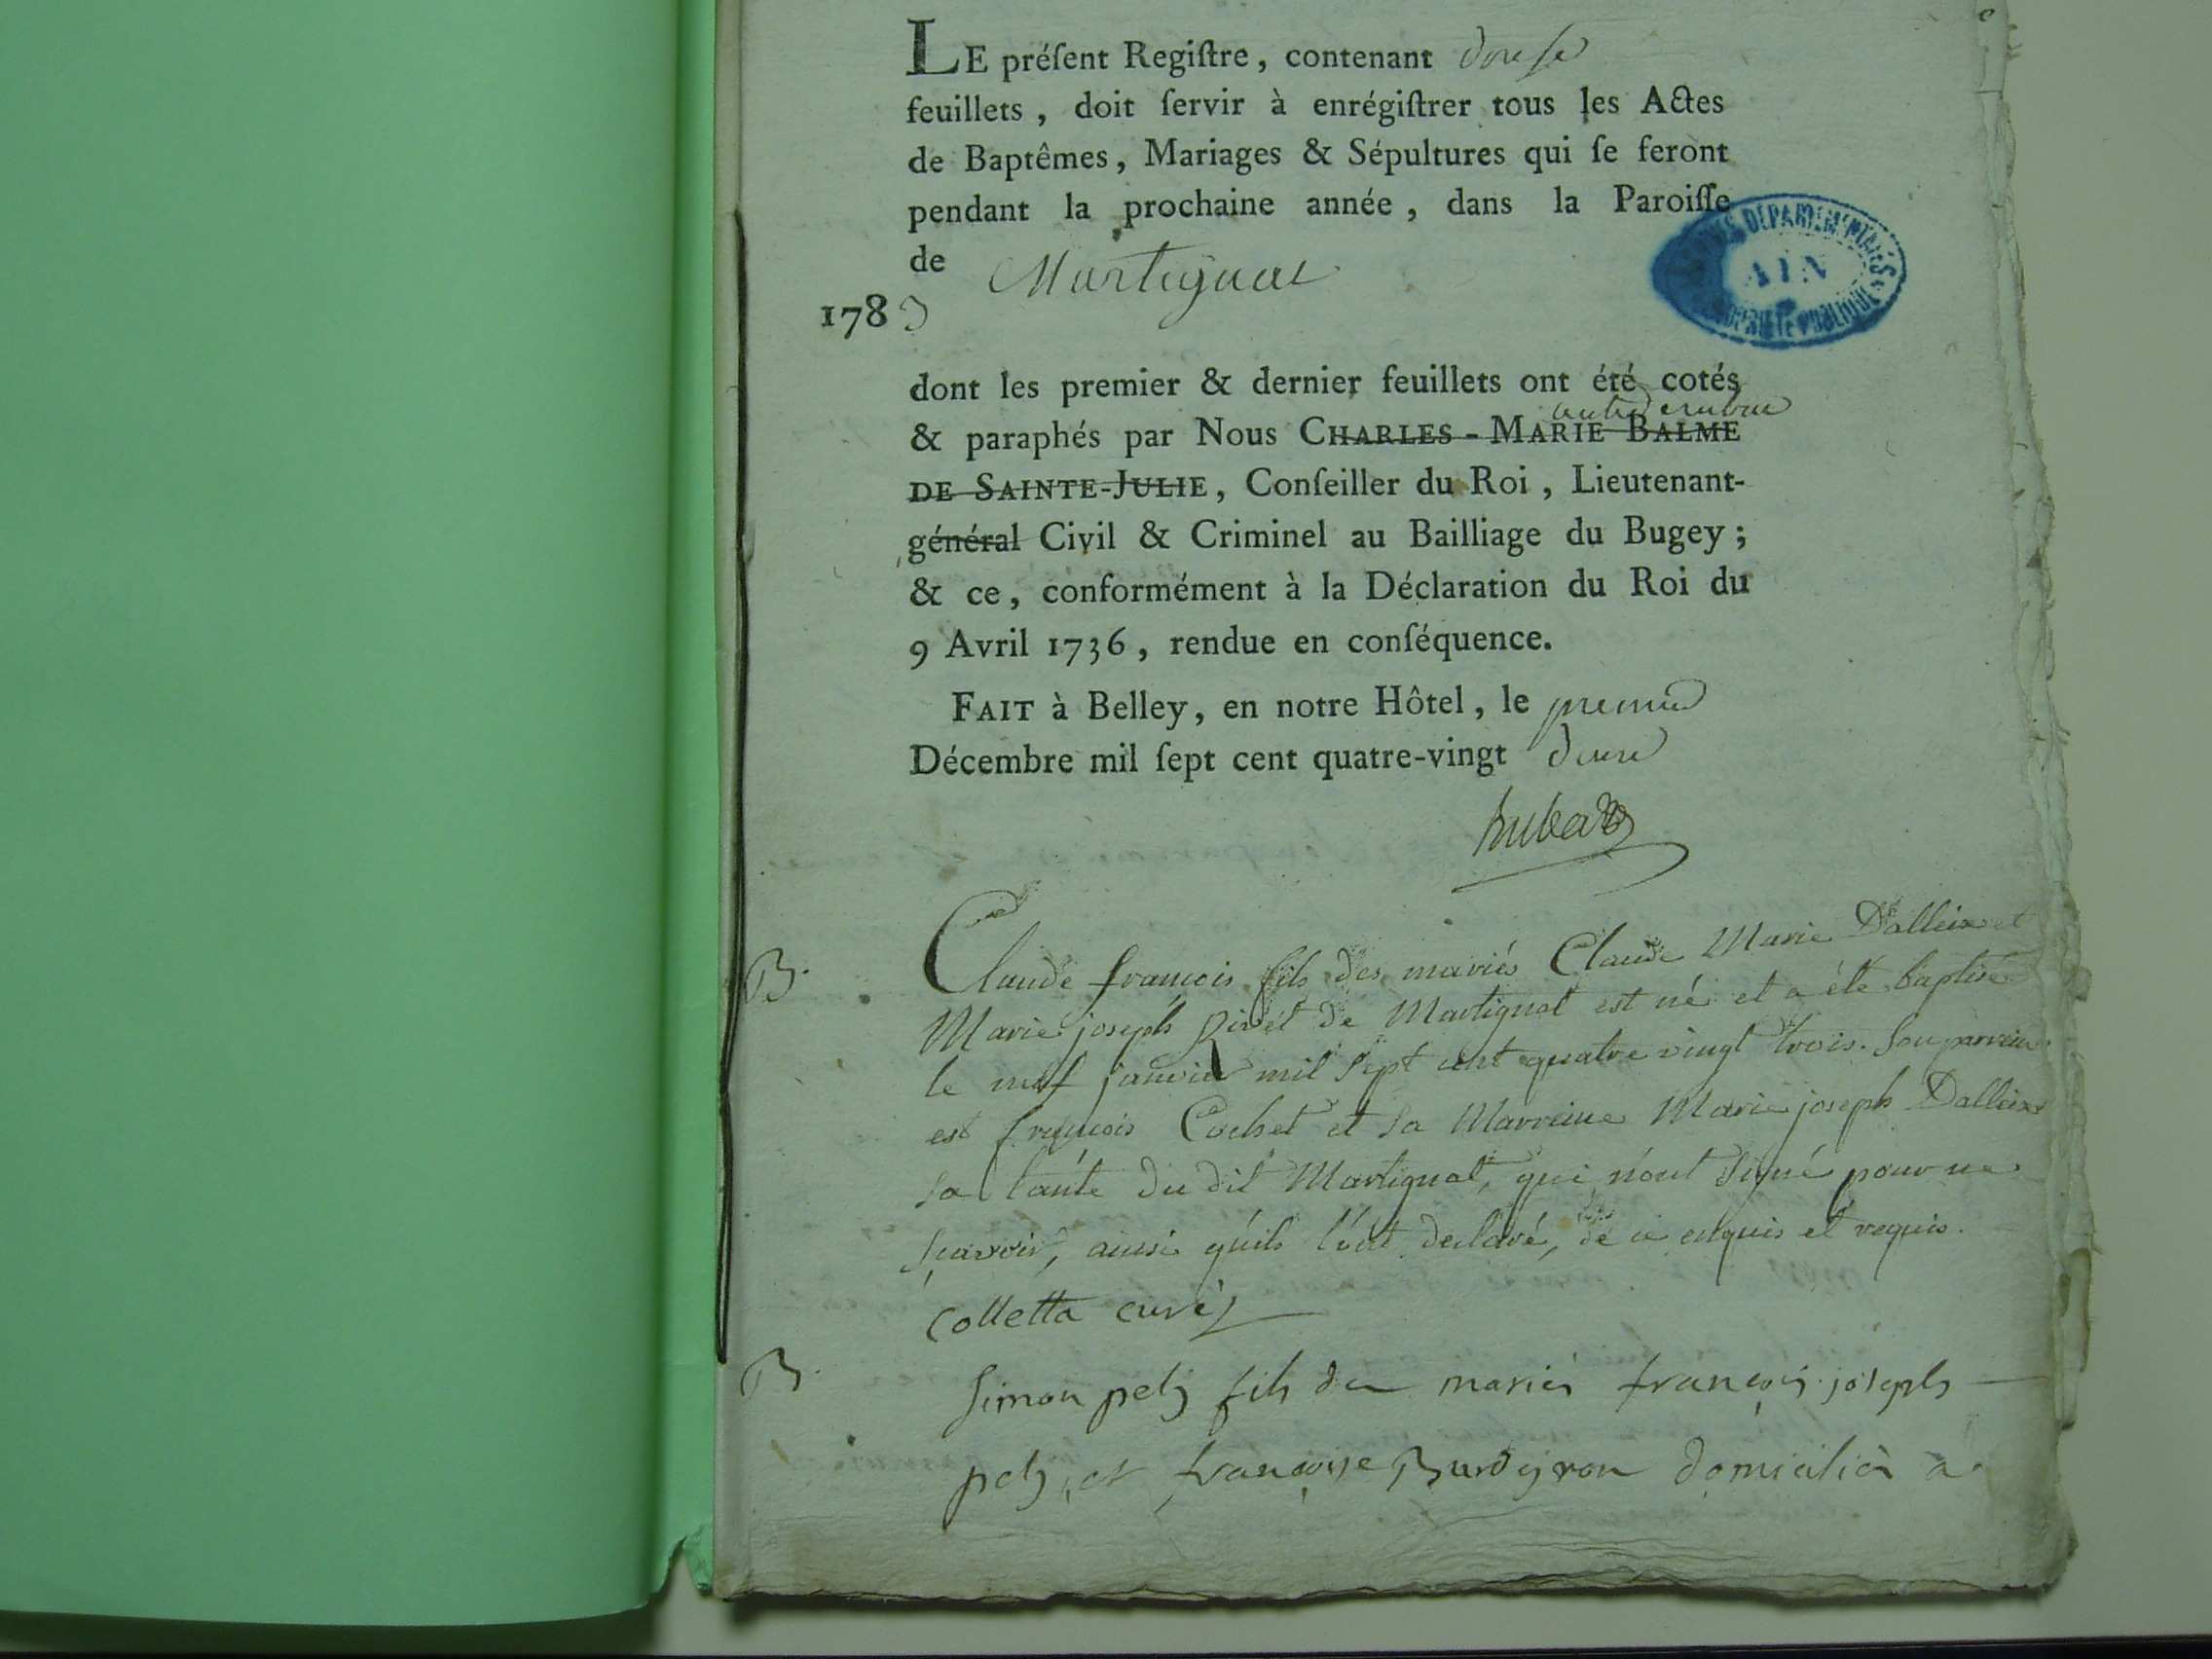 LE préſent Regiſtre, contenant douſe
feuillets, doit ſervir à enrégiſtrer tous les Actes
de Baptêmes, Mariages & Sépultures qui ſe feront
pendant la prochaine année, dans la Paroiſſe
de Martignat
1783
DEPARTEMENTALES
AIN
PROPRIÉTÉ PUBLIQUE
dont les premier & dernier feuillets ont été cotés
& paraphés par Nous CHARLES-MARIE BALME
DE SAINTE-JULIE, Conſeiller du Roi, Lieutenant-
général Civil & Criminel au Bailliage du Bugey;
& ce, conformément à la Déclaration du Roi du
9 Avril 1736, rendue en conſéquence.
FAIT à Belley, en notre Hôtel, le premier
Décembre mil ſept cent quatre-vingt deux
B.
Claude françois fils des mariés Claude Marie Dalleix et
Marie joseph Pivét de Martignat est né et a été baptisé
le neuf janvier mil sept cent quatre vingt trois. Son parrein
est françois Cochet et sa Marreine Marie joseph Dalleix
sa tante du dit Martignat, qui n'ont signé pour ne
sçavoir, ainsi qu'ils l'ont declaré, de ce enquis et requis.
Colletta curé
B.
Simon pely fils des mariés françois joseph
pely et françoise Burdeyron domiciliés à